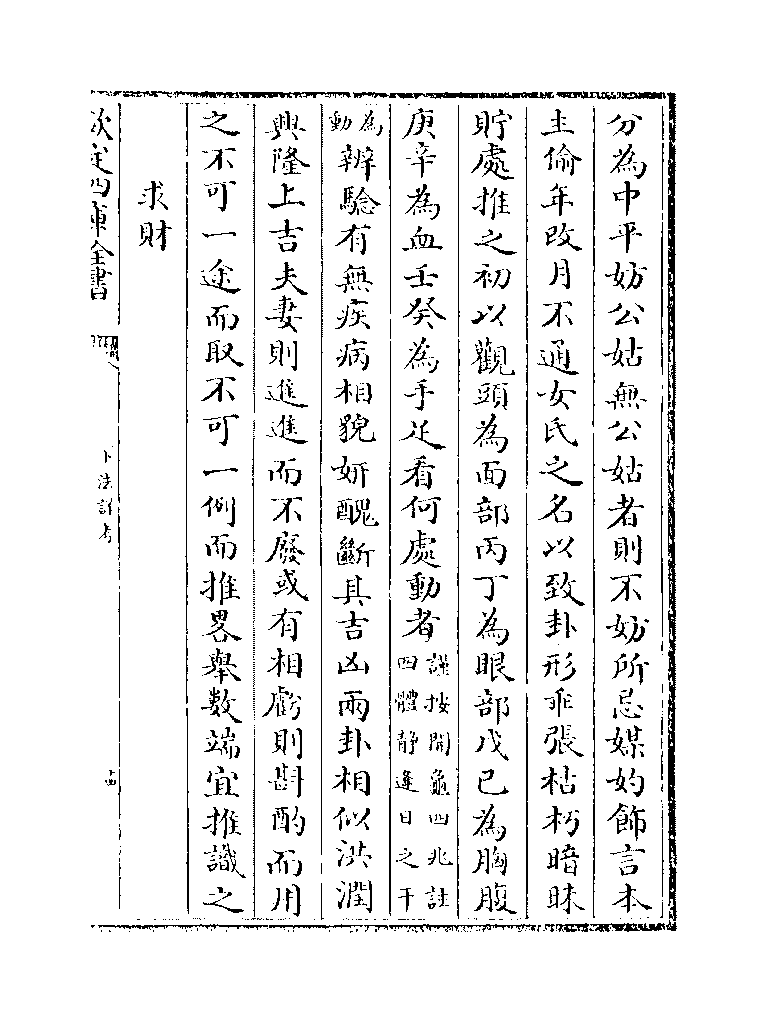 分為中平妨公姑無公姑者則不妨所忌媒妁飾言本
主偷年改月不通女氏之名以致卦形乖張枯朽暗昧
貯處推之初以觀頭為面部丙丁為眼部戊己為胸腹
庚辛為血壬癸為手足看何處動者謹按開龜四兆註四體靜逢日之干
為動辨驗有無疾病相貌妍醜斷其吉凶兩卦相似洪潤
興隆上吉夫妻則進進而不廢或有相虧則斟酌而用
之不可一途而取不可一例而推畧舉數端宜推識之
求財
欽定四庫全書
卜法詳考
十四